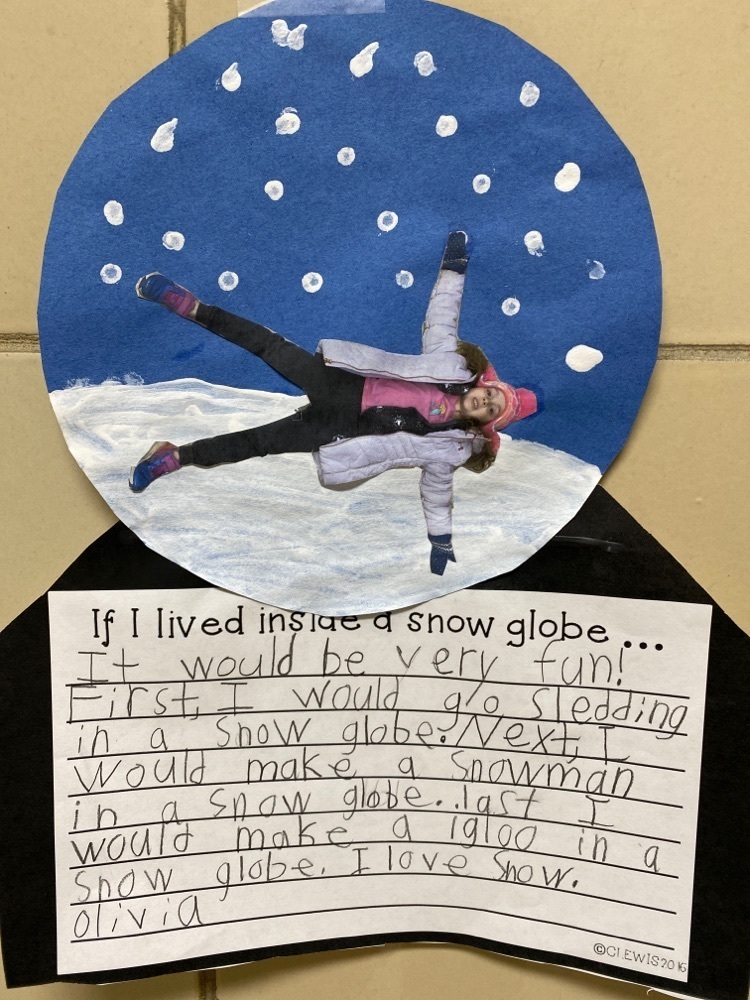 If I lived inside a snow globe ...
It would be very fun!
First, I would go sledding
in a snow globe. Next, I
would make a snowman
in a snow globe..last I
would make a igloo in a
snow globe. I love snow.
olivia
©C.LEWIS2016